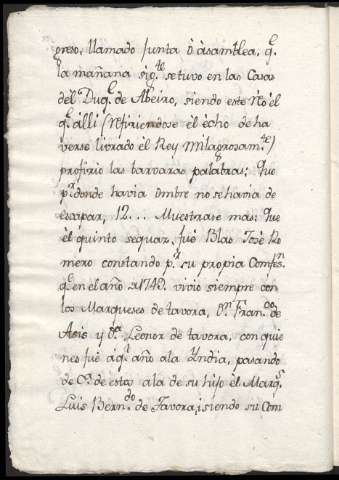 preso, llamado Junta ô àsamblea, q.e
la mañana sig.te se tuvo en las Casas
del Duq.e de Abeiro, siendo este
q.e álli (Refiriendose el echo de ha
verse livrado el Rey milagrosam.te)
profirio las barvaras palabras: Que
p.r donde havia ombre no se havia de
escapar, 12... Muestrase mas: Que
el quinto sequaz, fué Blas José Ro
mero constando p.r su propia Confes.n
q.e en el año 1749. vivio siempre con
los Marqueses de tavora, D.n Fran.co de
Asis y D.a Leonor de tavora, con quie
nes fué aq.l año ala Yndia, pasando
de C.a de estos ala de su hijo el Marq.s
Luis Bern.do de Tavora, siendo su Com